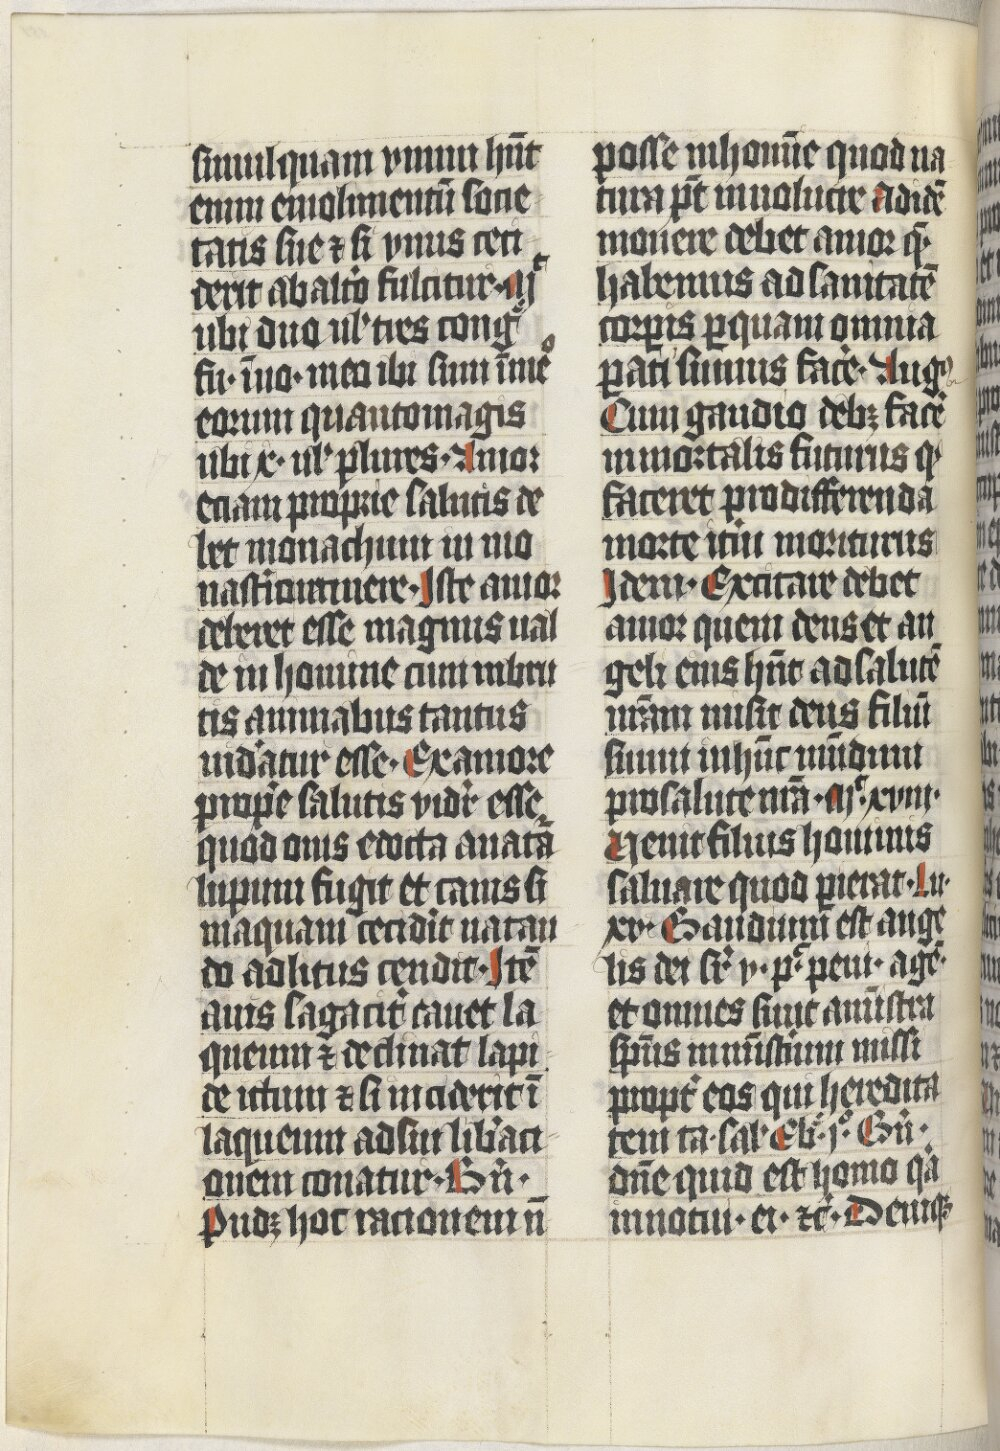 simul quam vnum hn̄t
enim emolimentū socie
tatis sue ⁊ si vnus ceci
derit ab alt͛o fulcitur· Mͭ
ubi duo ul' tres cong͛
fu· ī no· meo ibi sum ī meͦ
eorum quanto magis
ubi x· ul' plures· Amor
etiam proprie salutis de
bet monachum in mo
nast͛io retinere· Iste amor
deberet esse magnus ual
de in homine cum in bru
tis animabus tantus
uid͛atur esse· Ex amore
prop͛e salutis vidr͛ esse
quod ouis edocta a natā
lupum fugit et canis si
in aquam cecid͛it natan
do ad litus tendit· Itē
auis sagacit͛ cauet la
queum ⁊ declinat lapi
de ictum ⁊ si inciderit ī
laqueum ad sui lib͛aci
onem conatur· Gn̄·
Pudꝫ hoc racionem n̄
posse in homīe quod na
tura pt̄ in uolucre Ad idē
mouere debet amor q̄
habemus ad sanitatē
corꝑis ꝑ quam omnia
pati sumus fac͛e· Augꝰ
Cum gaudio debꝫ fac͛e
inmortalis futurus q̄
faceret pro differenda
morte it͛um moriturus
Idem· Excitare debet
amor quem deus et an
geli eius hn̄t ad salutē
nr̄am misit deus filiū
suum in hūc mūdum
pro salute nr̄a· Mͭ· xviii·
Venit filius hominis
saluare quod pierat· Lu·
xv· Gaudium est ange
lis dei sr͛ v· pͨ· peni· agē·
et omnes sunt amīstra
sp̄us in minist͛ium missi
propt͛ eos qui heredita
tem ca· sal' Eb͛· jͦ· Gn̄·
dn̄e quid est homo q͛a
innotui· ei· ⁊c̄· Deniqꝫ